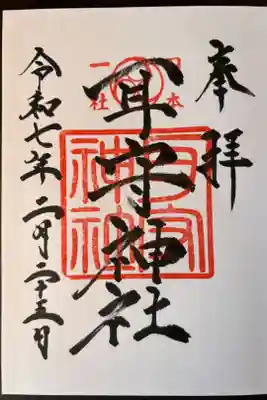 奉拝
日本
一社
耳守神社
耳守
神社
令和七年二月二十三日